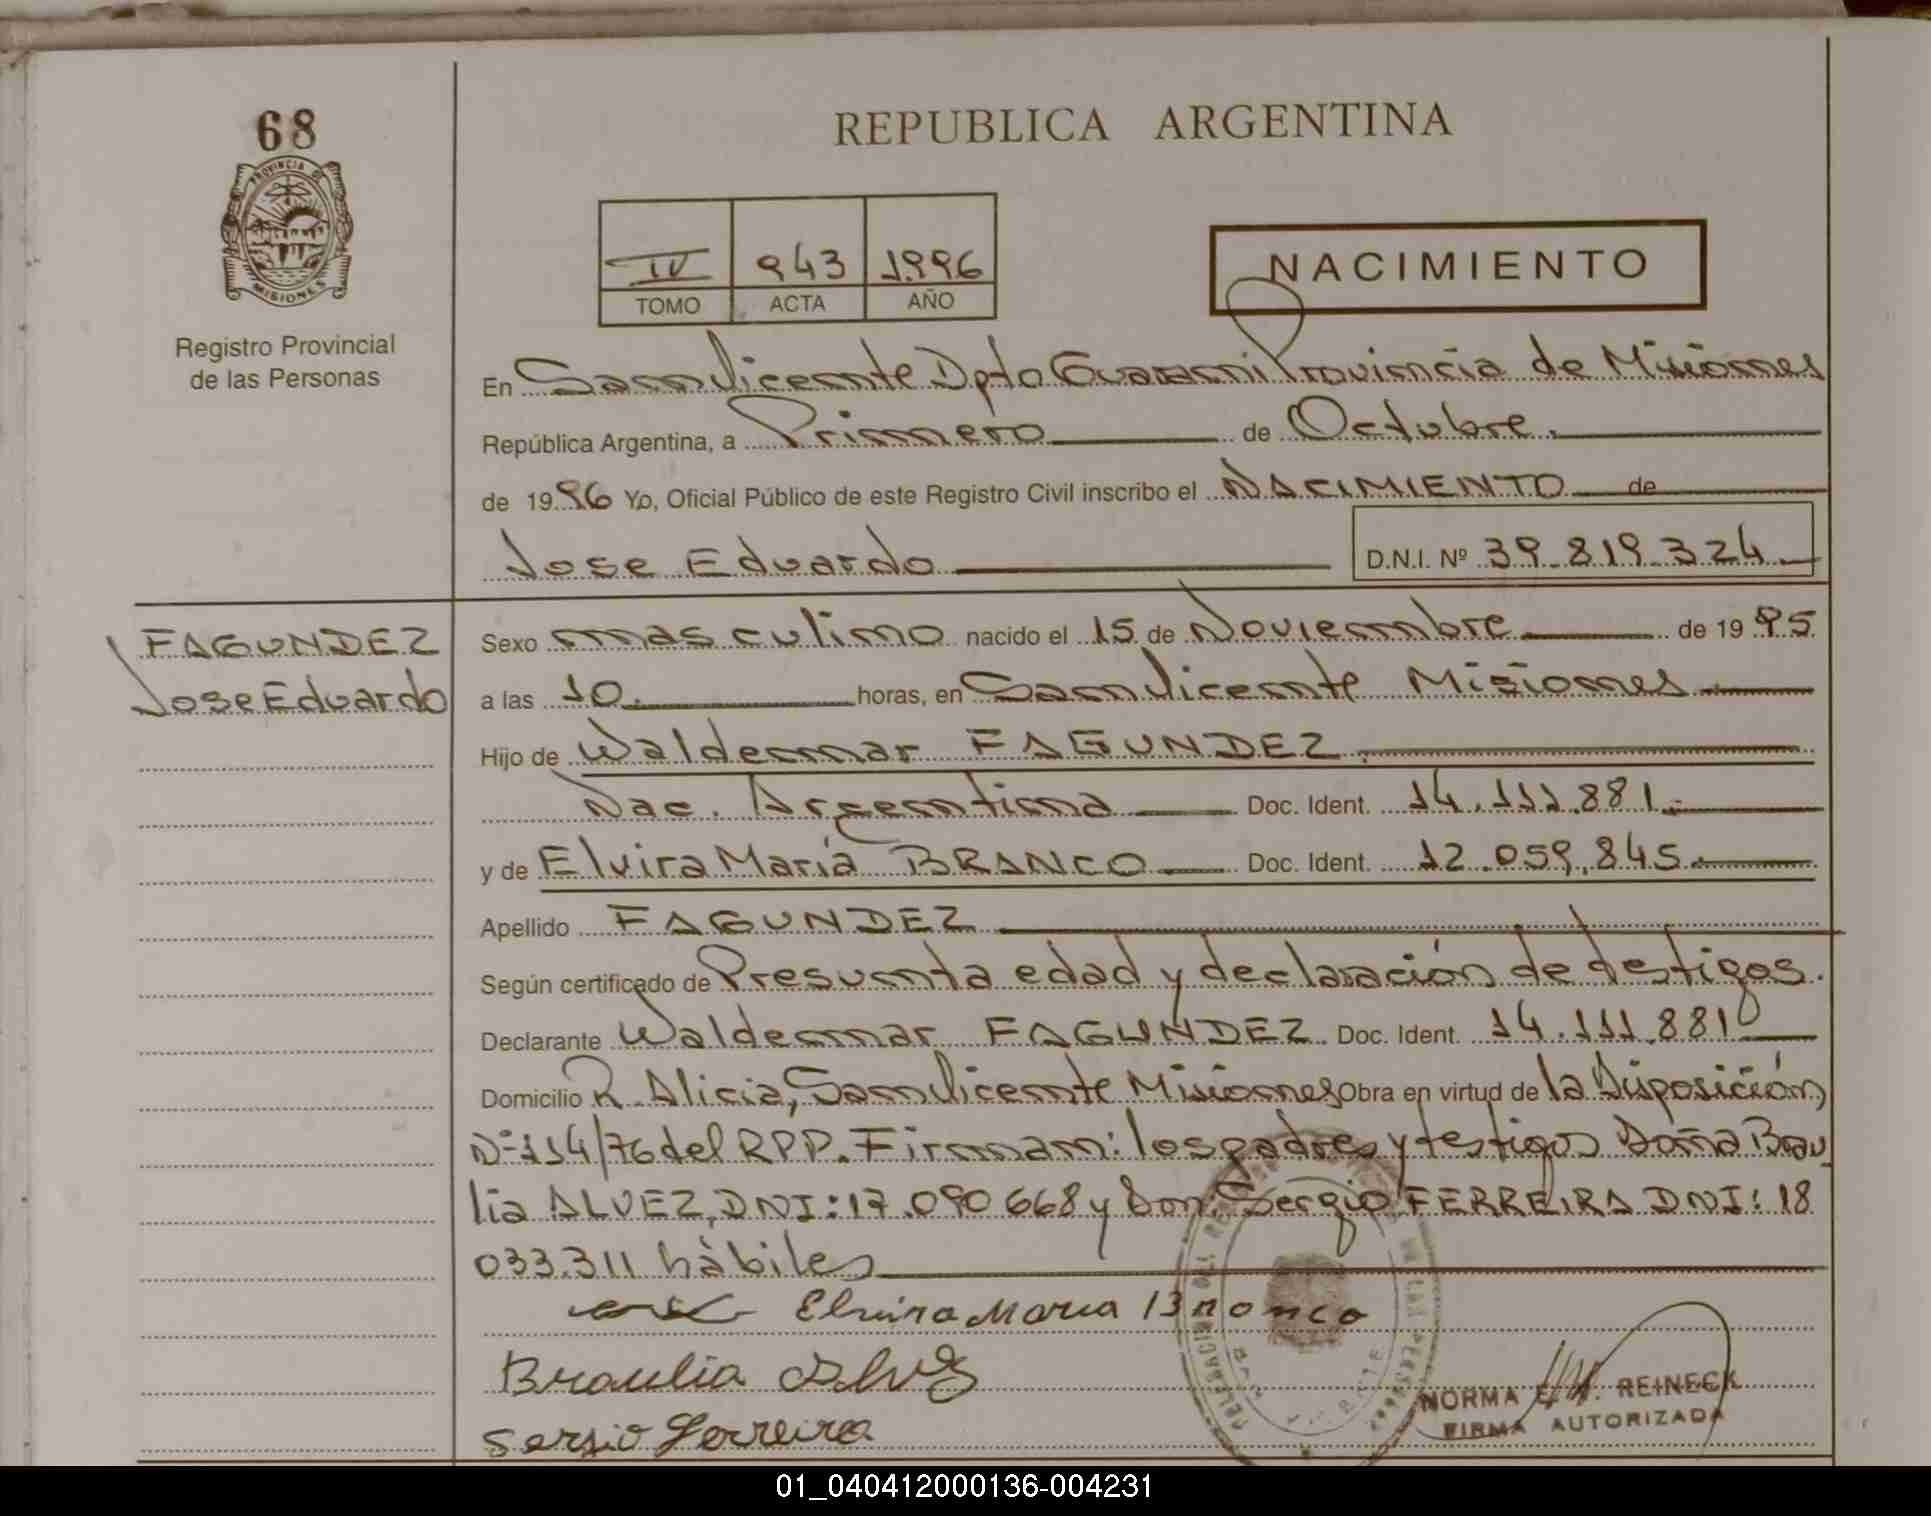 68
PROVINCIA DE
MISIONES
Registro Provincial
de las Personas
REPUBLICA ARGENTINA
IV 943 1996
TOMO ACTA AÑO
NACIMIENTO
En San Vicente Dpto Guarani Provincia de Misiones
República Argentina, a Primero de Octubre.
de 1996 Yo, Oficial Público de este Registro Civil inscribo el NACIMIENTO de
Jose Eduardo D.N.I. Nº 39.819.324
FAGUNDEZ
Jose Eduardo
Sexo masculino nacido el 15 de Noviembre de 1995
a las 10. horas, en San Vicente Misiones
Hijo de Waldemar FAGUNDEZ
Nac. Argentina Doc. Ident. 14.111.881.
y de Elvira María BRANCO Doc. Ident. 12.059.845
Apellido FAGUNDEZ
Según certificado de Presunta edad y declaración de testigos.
Declarante Waldemar FAGUNDEZ. Doc. Ident. 14.111.881
Domicilio R. Alicia, San Vicente Misiones Obra en virtud de la Disposición
Nº 114/76 del RPP. Firman: los padres y testigos Doña Brau
lia ALVEZ, DNI: 17.090 668 y Don: Sergio FERREIRA DNI: 18
033.311 hàbiles
Elvira Maria Branco
Braulia Alvez
Sergio Ferreira
NORMA E. REINECK
FIRMA AUTORIZADA
01_040412000136-004231